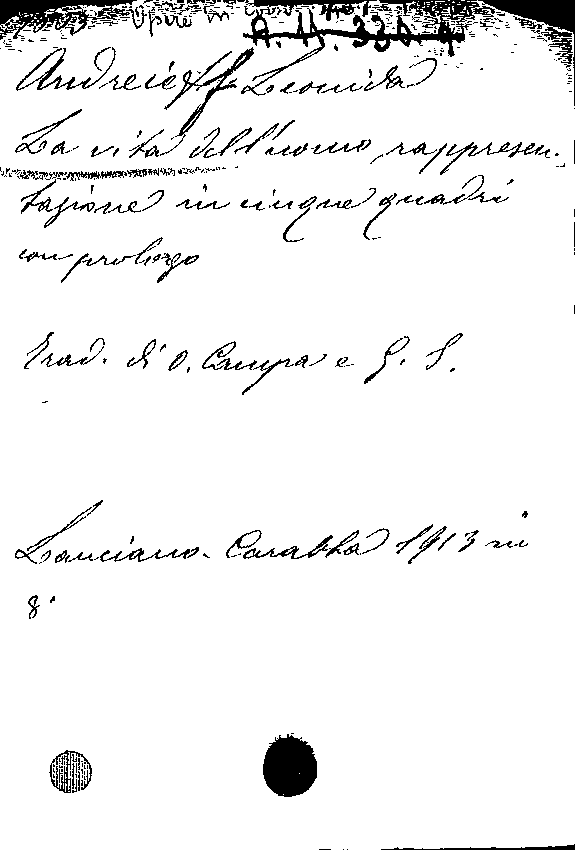 Opere in
A. 15. 330. 9
Andreieff Leonida
La vita dell'uomo, rappresen-
tazione in cinque quadri
con prologo
Trad. di O. Campa e G. S.
Lanciano. Carabba 1913 in
8°